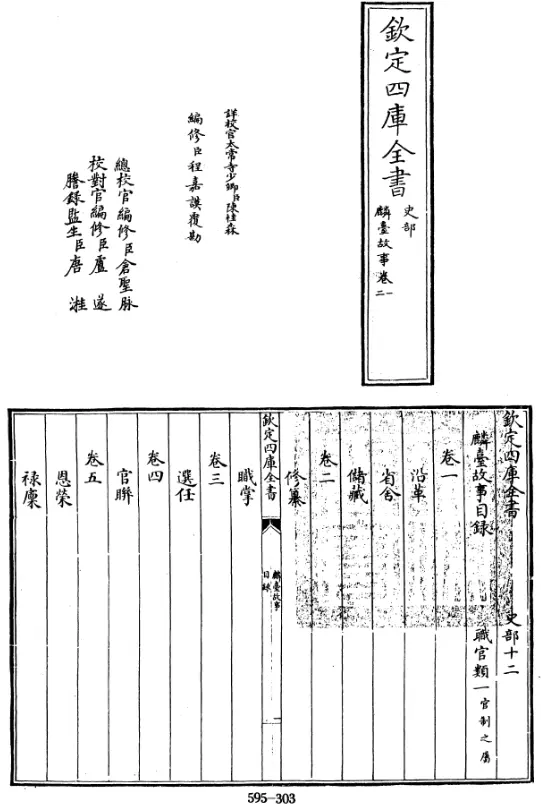 欽定四庫全書
史部
麟臺故事卷一二
詳校官太常寺少卿臣陳桂森
編修臣程嘉謨覆勘
總校官編修臣倉聖脉
校對官編修臣盧遂
謄錄監生臣唐漼
欽定四庫全書 史部十二
麟臺故事目録 職官類一官制之屬
卷一
沿革
省舍
儲藏
卷二
修纂
欽定四庫全書
麟臺故事
目録
一
職掌
卷三
選任
卷四
官聯
卷五
恩榮
祿廩
595-303